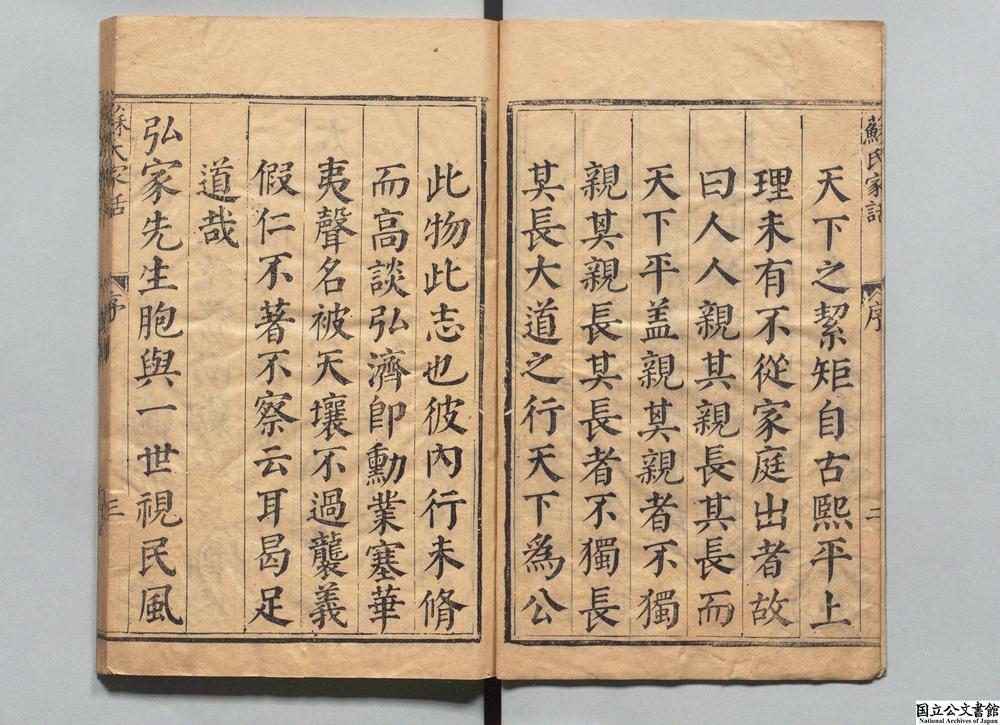 蘇氏家語
序
二
天下之絜矩自古熙平上
理未有不從家庭出者故
曰人人親其親長其長而
天下平盖親其親者不獨
親其親長其長者不獨長
其長大道之行天下為公
此物此志也彼內行未脩
而高談弘濟卽勳業塞華
夷聲名被天壤不過襲義
假仁不著不察云耳曷足
道哉
弘家先生胞與一世視民風
序
三
国立公文書館
National Archives of Japan